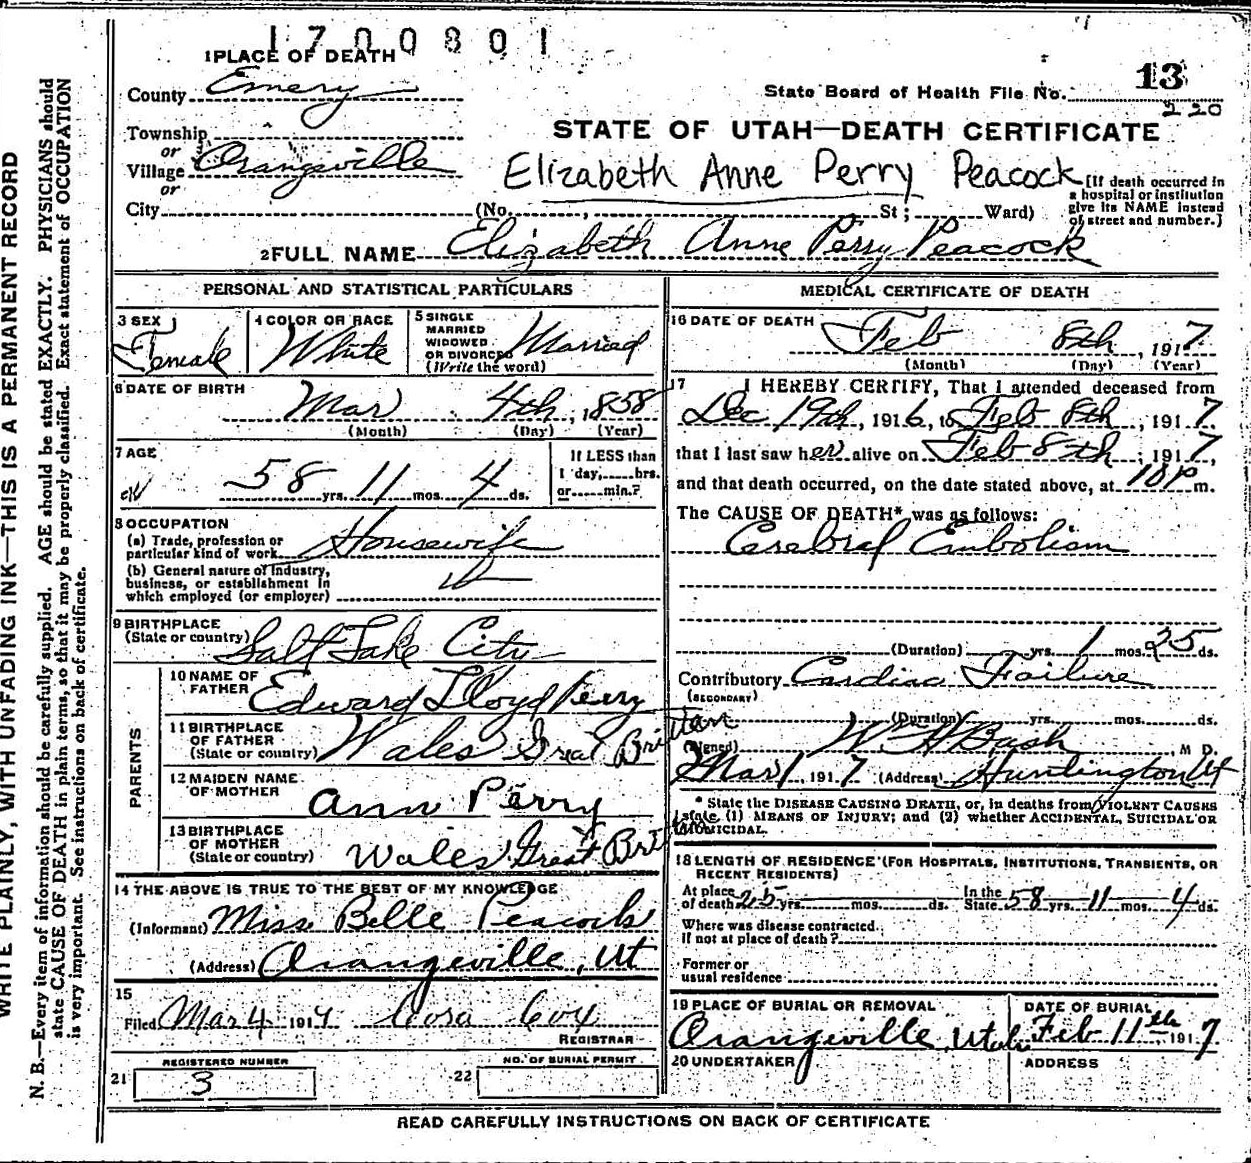 1700801
1 PLACE OF DEATH
County Emery
State Board of Health File No. 13
220
Township
or
Village Orangeville
or
City
STATE OF UTAH—DEATH CERTIFICATE
Elizabeth Anne Perry Peacock
(No. , St; Ward)
[If death occurred in
a hospital or institution
give its NAME instead
of street and number.]
2 FULL NAME Elizabeth Anne Perry Peacock
PERSONAL AND STATISTICAL PARTICULARS
3 SEX
Female
4 COLOR OR RACE
White
5 SINGLE
MARRIED
WIDOWED
OR DIVORCED
(Write the word)
Married
6 DATE OF BIRTH
Mar 4th, 1858
(Month) (Day) (Year)
7 AGE
58 yrs. 11 mos. 4 ds.
If LESS than
1 day, hrs.
or min.?
8 OCCUPATION
(a) Trade, profession or
particular kind of work Housewife
(b) General nature of Industry,
business, or establishment in
which employed (or employer)
9 BIRTHPLACE
(State or country) Salt Lake City
PARENTS
10 NAME OF
FATHER Edward Lloyd Perry
11 BIRTHPLACE
OF FATHER
(State or country) Wales Great Brittan
12 MAIDEN NAME
OF MOTHER Ann Perry
13 BIRTHPLACE
OF MOTHER
(State or country) Wales Great
14 THE ABOVE IS TRUE TO THE BEST OF MY KNOWLEDGE
(Informant) Miss Belle Peacock
(Address) Orangeville, Ut
15
Filed Mar 4 1917 Cora Cox
REGISTRAR
REGISTERED NUMBER
21 3
NO. OF BURIAL PERMIT
22
MEDICAL CERTIFICATE OF DEATH
16 DATE OF DEATH
Feb 8th, 1917
(Month) (Day) (Year)
17 I HEREBY CERTIFY, That I attended deceased from
Dec 19th, 1916, to Feb 8th, 1917.
that I last saw her alive on Feb 8th, 1917,
and that death occurred, on the date stated above, at 10 P m.
The CAUSE OF DEATH* was as follows:
Cerebral Embolism
(Duration) yrs. 1 mos. 25 ds.
Contributory Cardiac Failure
(SECONDARY)
(Duration) yrs. mos. ds.
(Signed) W H Bash, M D.
Mar 1, 1917 (Address) Huntington Ut
* State the DISEASE CAUSING DEATH, or, in deaths from VIOLENT CAUSES
state (1) MEANS OF INJURY; and (2) whether ACCIDENTAL, SUICIDAL OR
HOMICIDAL.
18 LENGTH OF RESIDENCE (FOR HOSPITALS, INSTITUTIONS, TRANSIENTS, OR
RECENT RESIDENTS)
At place
of death 25 yrs. mos. ds.
In the
State 58 yrs. 11 mos. 4 ds.
Where was disease contracted
if not at place of death?
Former or
usual residence
19 PLACE OF BURIAL OR REMOVAL
Orangeville, Utah
DATE OF BURIAL
Feb 11th, 1917
20 UNDERTAKER
ADDRESS
READ CAREFULLY INSTRUCTIONS ON BACK OF CERTIFICATE
WRITE PLAINLY, WITH UNFADING INK—THIS IS A PERMANENT RECORD
N. B.—Every item of information should be carefully supplied. AGE should be stated EXACTLY. PHYSICIANS should
state CAUSE OF DEATH in plain terms, so that it may be properly classified. Exact statement of OCCUPATION
is very important. See instructions on back of certificate.